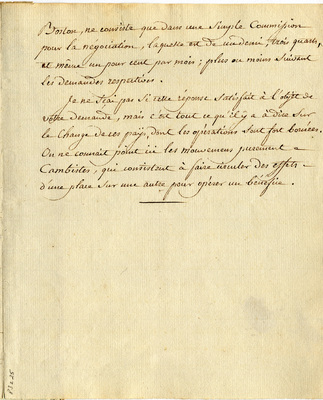 Boston, ne consiste que dans une simple Commission
pour la negociation, laquelle est de un demi, trois quarts,
et même un pour cent par mois; plus ou moins suivant
les demandes respectives.
Je ne sai pas si cette réponse satisfait à l'objet de
votre demande, mais c'est tout ce qu'il y a à dire sur
le Change de ces pays, dont les opérations sont fort bornées.
On ne connait point ici les mouvemens purement
Cambistes, qui consistent à faire circuler des effets
d'une place sur une autre pour opérer un bénéfice.